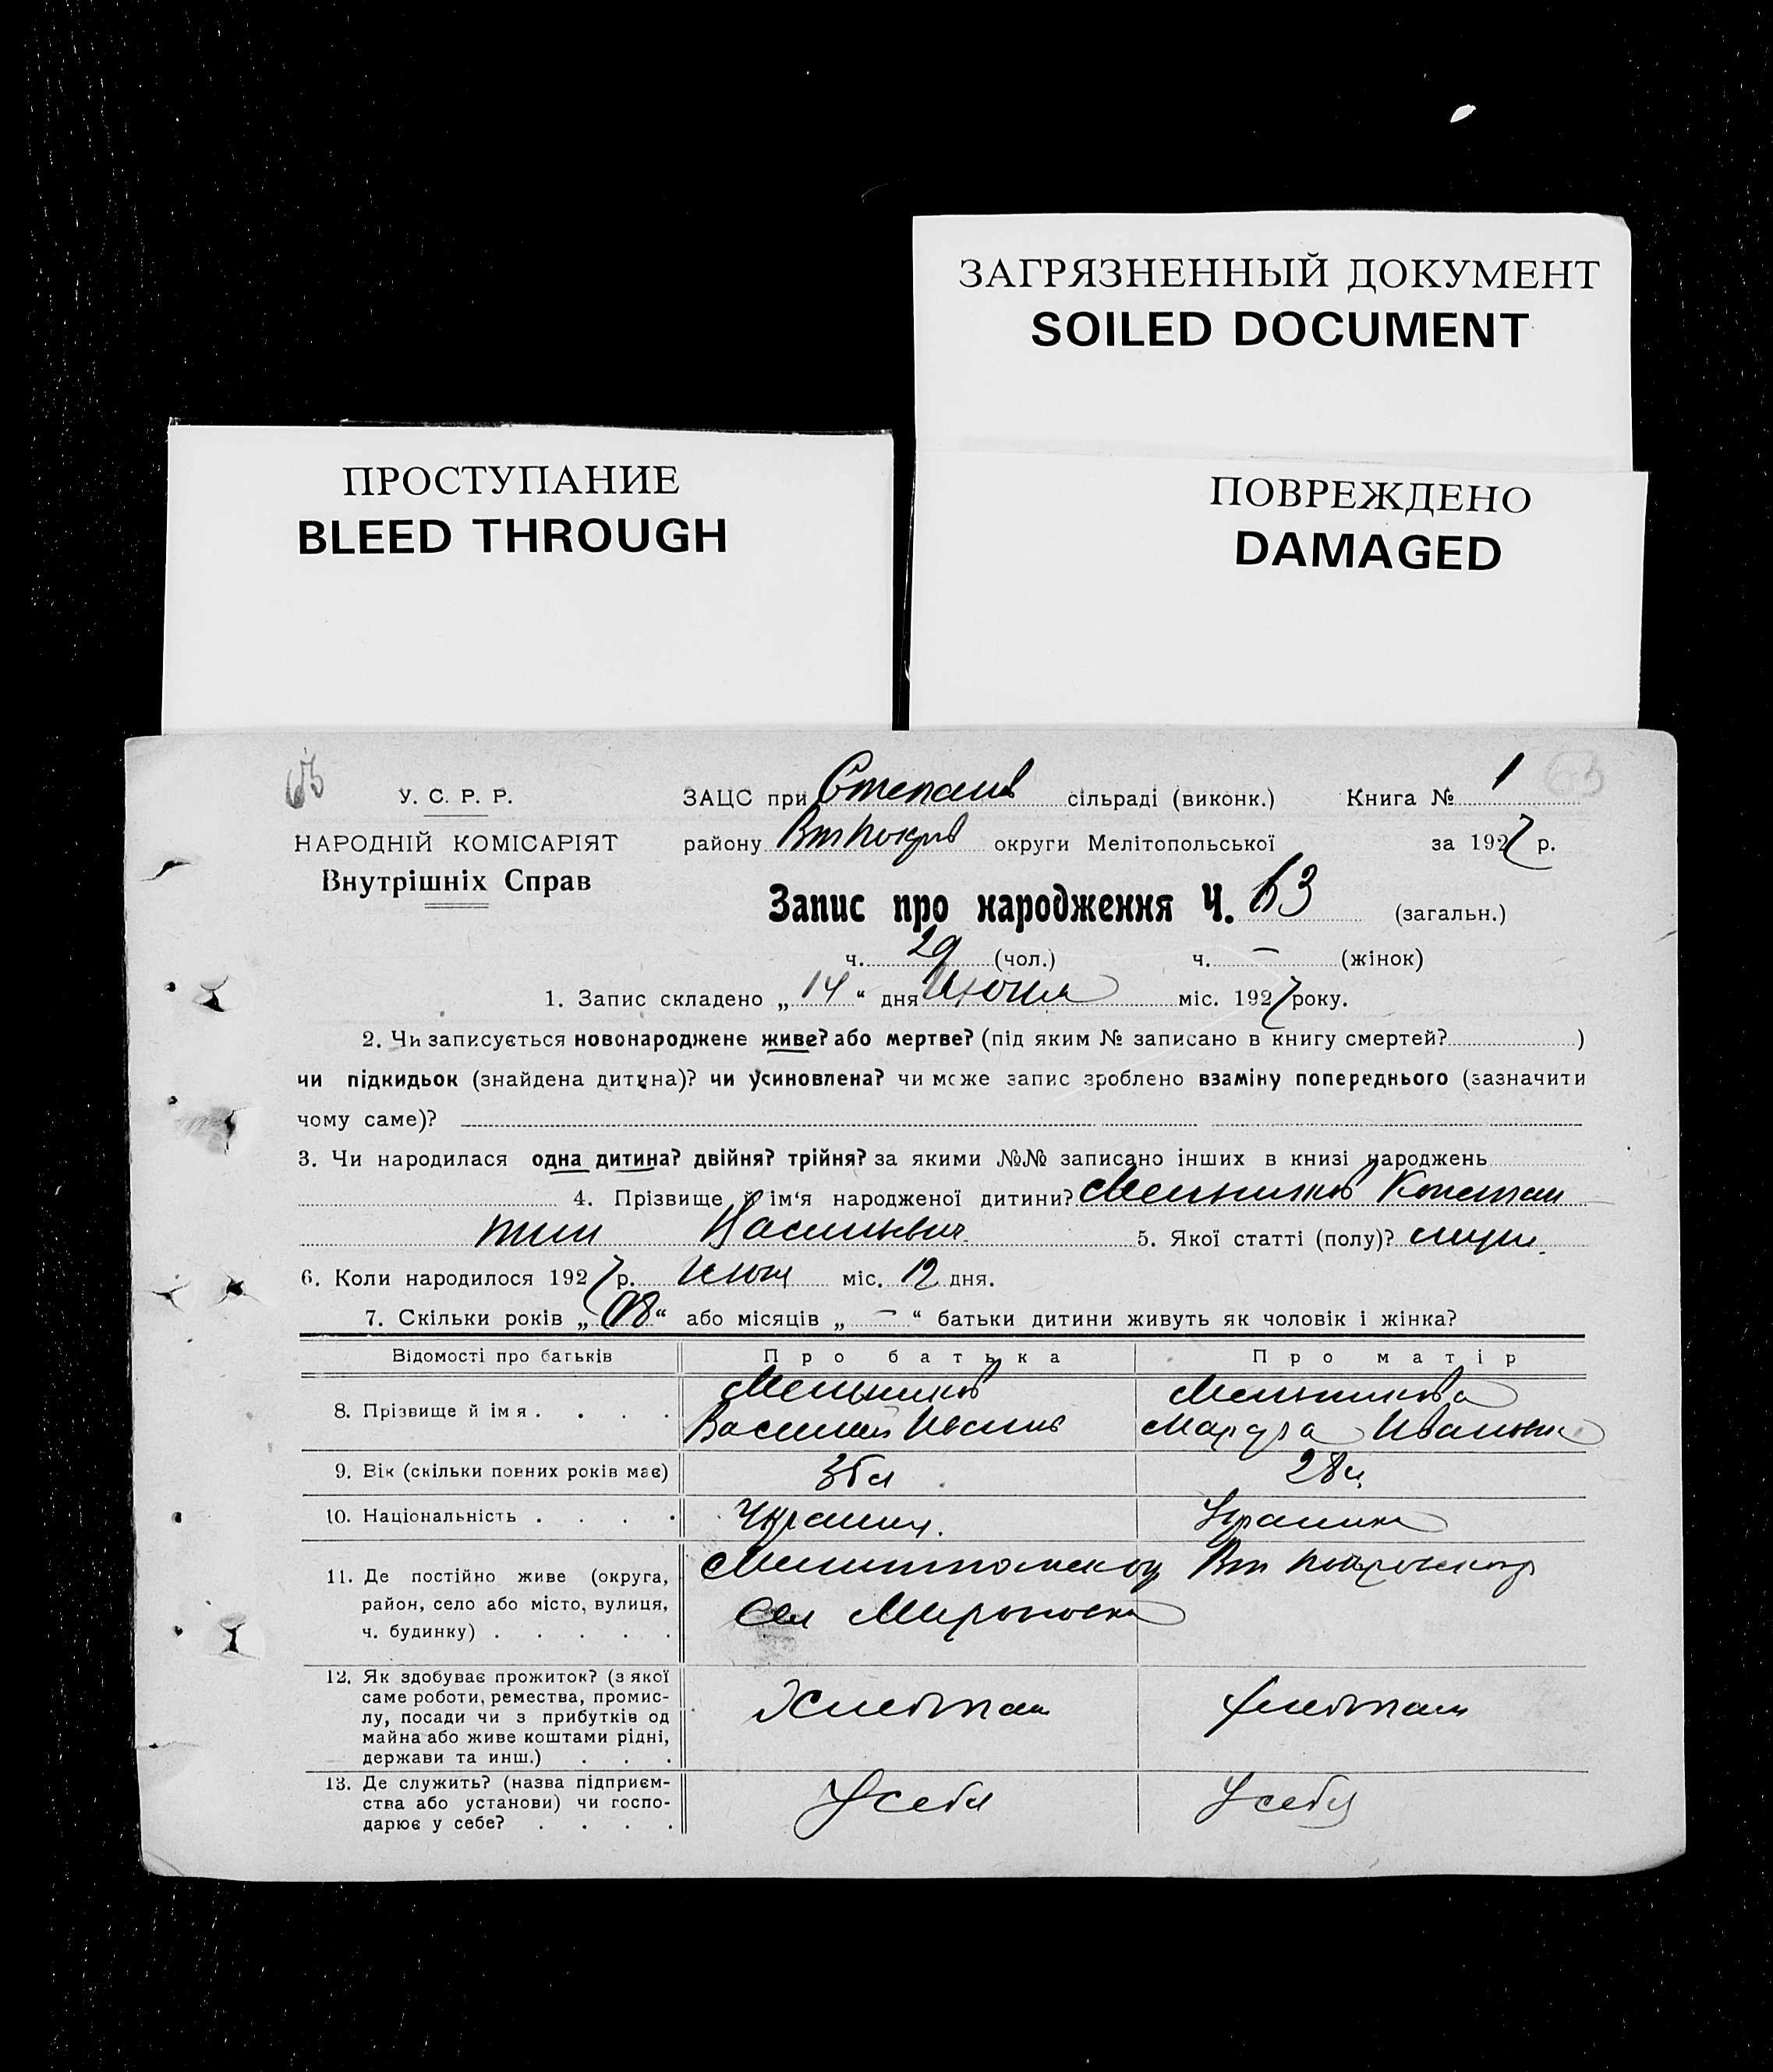 ЗАГРЯЗНЕННЫЙ ДОКУМЕНТ
SOILED DOCUMENT
ПРОСТУПАНИЕ
BLEED THROUGH
ПОВРЕЖДЕНО
DAMAGED
63
У. С. Р. Р.
НАРОДНІЙ КОМІСАРІЯТ
Внутрішніх Справ
ЗАЦС при Степанів сільраді (виконк.) Книга № 1
району Втпокрів округи Мелітопольської за 1927 р.
Запис про народження Ч. 63 (загальн.)
ч. 29 (чол.) ч. — (жінок)
1. Запис складено „ 14 “ дня Июня міс. 1927 року.
2. Чи записується новонароджене живе? або мертве? (під яким № записано в книгу смертей? )
чи підкидьок (знайдена дитина)? чи усиновлена? чи може запис зроблено взаміну попереднього (зазначити
чому саме)?
3. Чи народилася одна дитина? двійня? трійня? за якими №№ записано інших в книзі народжень
4. Прізвище й ім‘я народженої дитини? Мельников Констан
тин Васильевич 5. Якої статті (полу)? муж.
6. Коли народилося 1927 р. Июня міс. 12 дня.
7. Скільки років „ “ або місяців „ — “ батьки дитини живуть як чоловік і жінка?
Відомості про батьків Про батька Про матір
8. Прізвище й імя . . . . . Мельников Мельникова
Василий Марфа Ивановна
9. Вік (скільки повних років має) 28
10. Національність . . . . . Украинц. Украинка
11. Де постійно живе (округа,
район, село або місто, вулиця,
ч. будинку) . . . . .
Мелитпольской Вт Покровского
Сел
12. Як здобуває прожиток? (з якої
саме роботи, ремества, промис-
лу, посади чи з прибутків од
майна або живе коштами рідні,
держави та инш.) . . .
Хлебпаш Хлебпаш
13. Де служить? (назва підприєм-
ства або установи) чи госпо-
дарює у себе? . . . .
У себя У себя